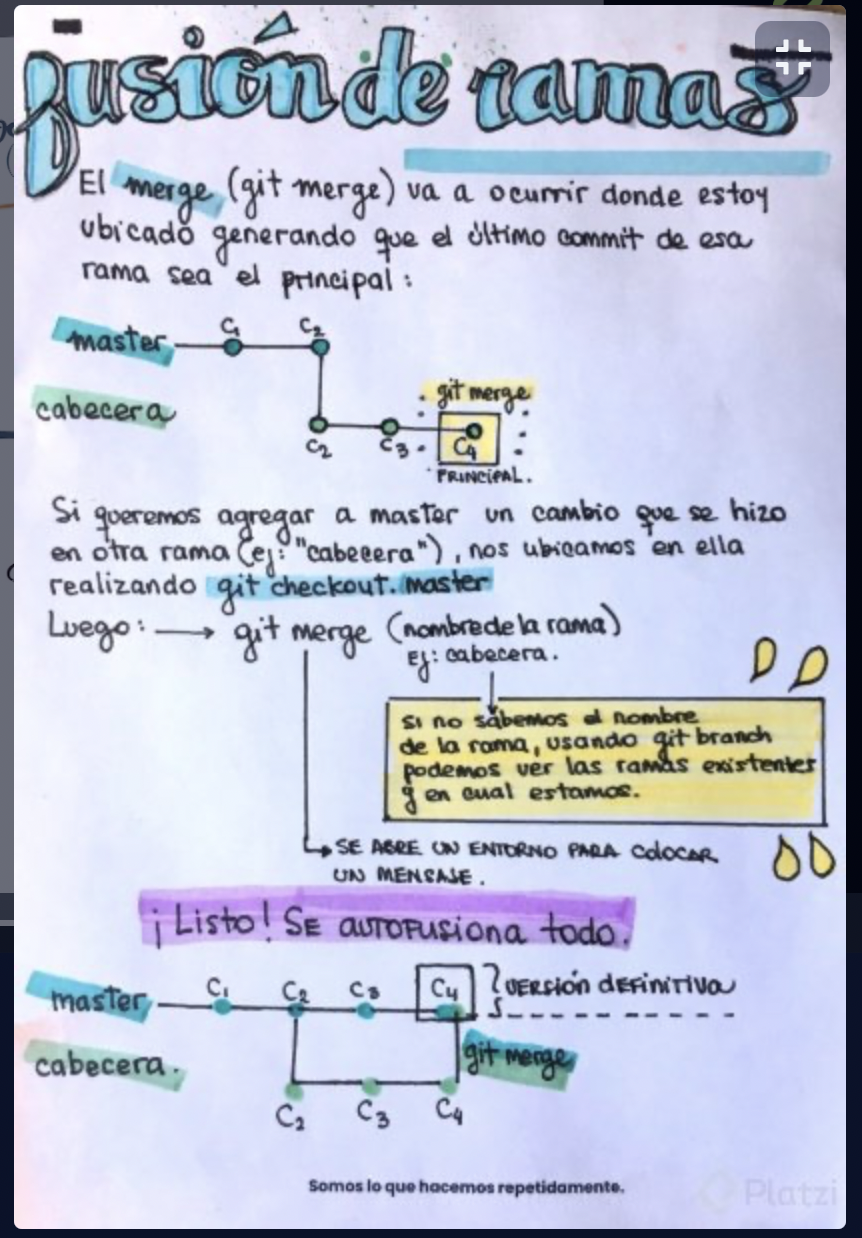 fusión de ramas
El merge (git merge) va a ocurrir donde estoy
ubicado generando que el último commit de esa
rama sea el principal:
master
C1
C2
cabecera
git merge
C2
C3
C4
PRINCIPAL.
Si queremos agregar a master un cambio que se hizo
en otra rama (ej: "cabecera"), nos ubicamos en ella
realizando git checkout. master
Luego: → git merge (nombre de la rama)
Ej: cabecera.
Si no sabemos el nombre
de la rama, usando git branch
podemos ver las ramas existentes
y en cual estamos.
SE ABRE UN ENTORNO PARA COLOCAR
UN MENSAJE.
¡Listo! SE AUTOFUSIONA todo.
master
C1
C2
C3
C4
VERSIÓN DEFINITIVA
cabecera.
git merge
C2
C3
C4
Somos lo que hacemos repetidamente.
Platzi